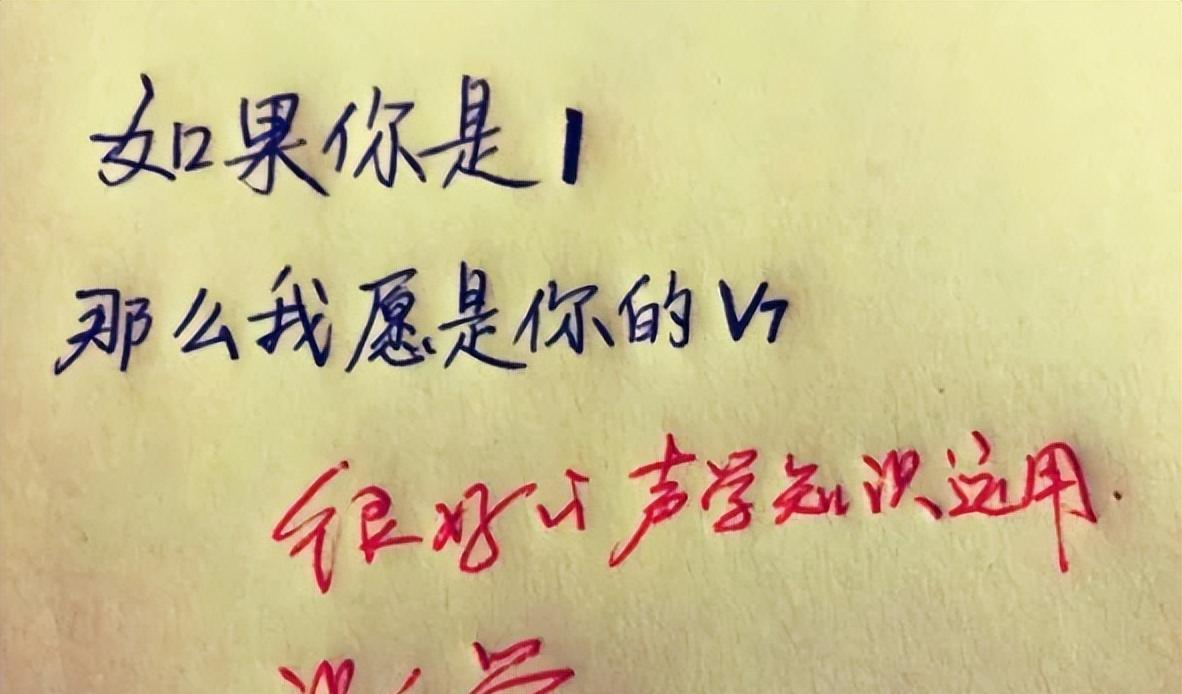 如果你是1
那么我愿是你的V7
很好的声学知识运用.